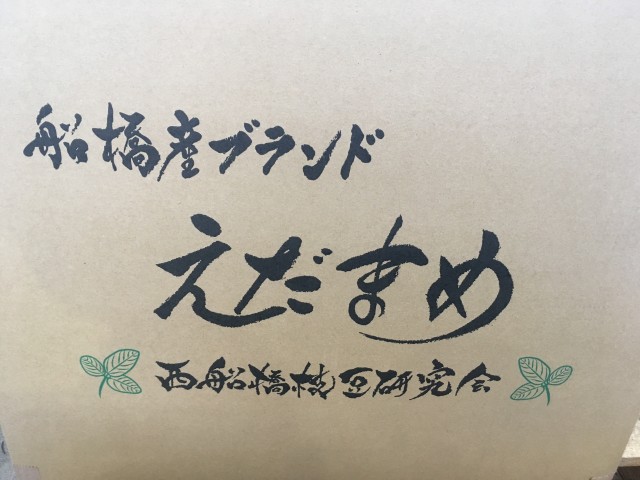 船橋産ブランド
えだまめ
西船橋枝豆研究会